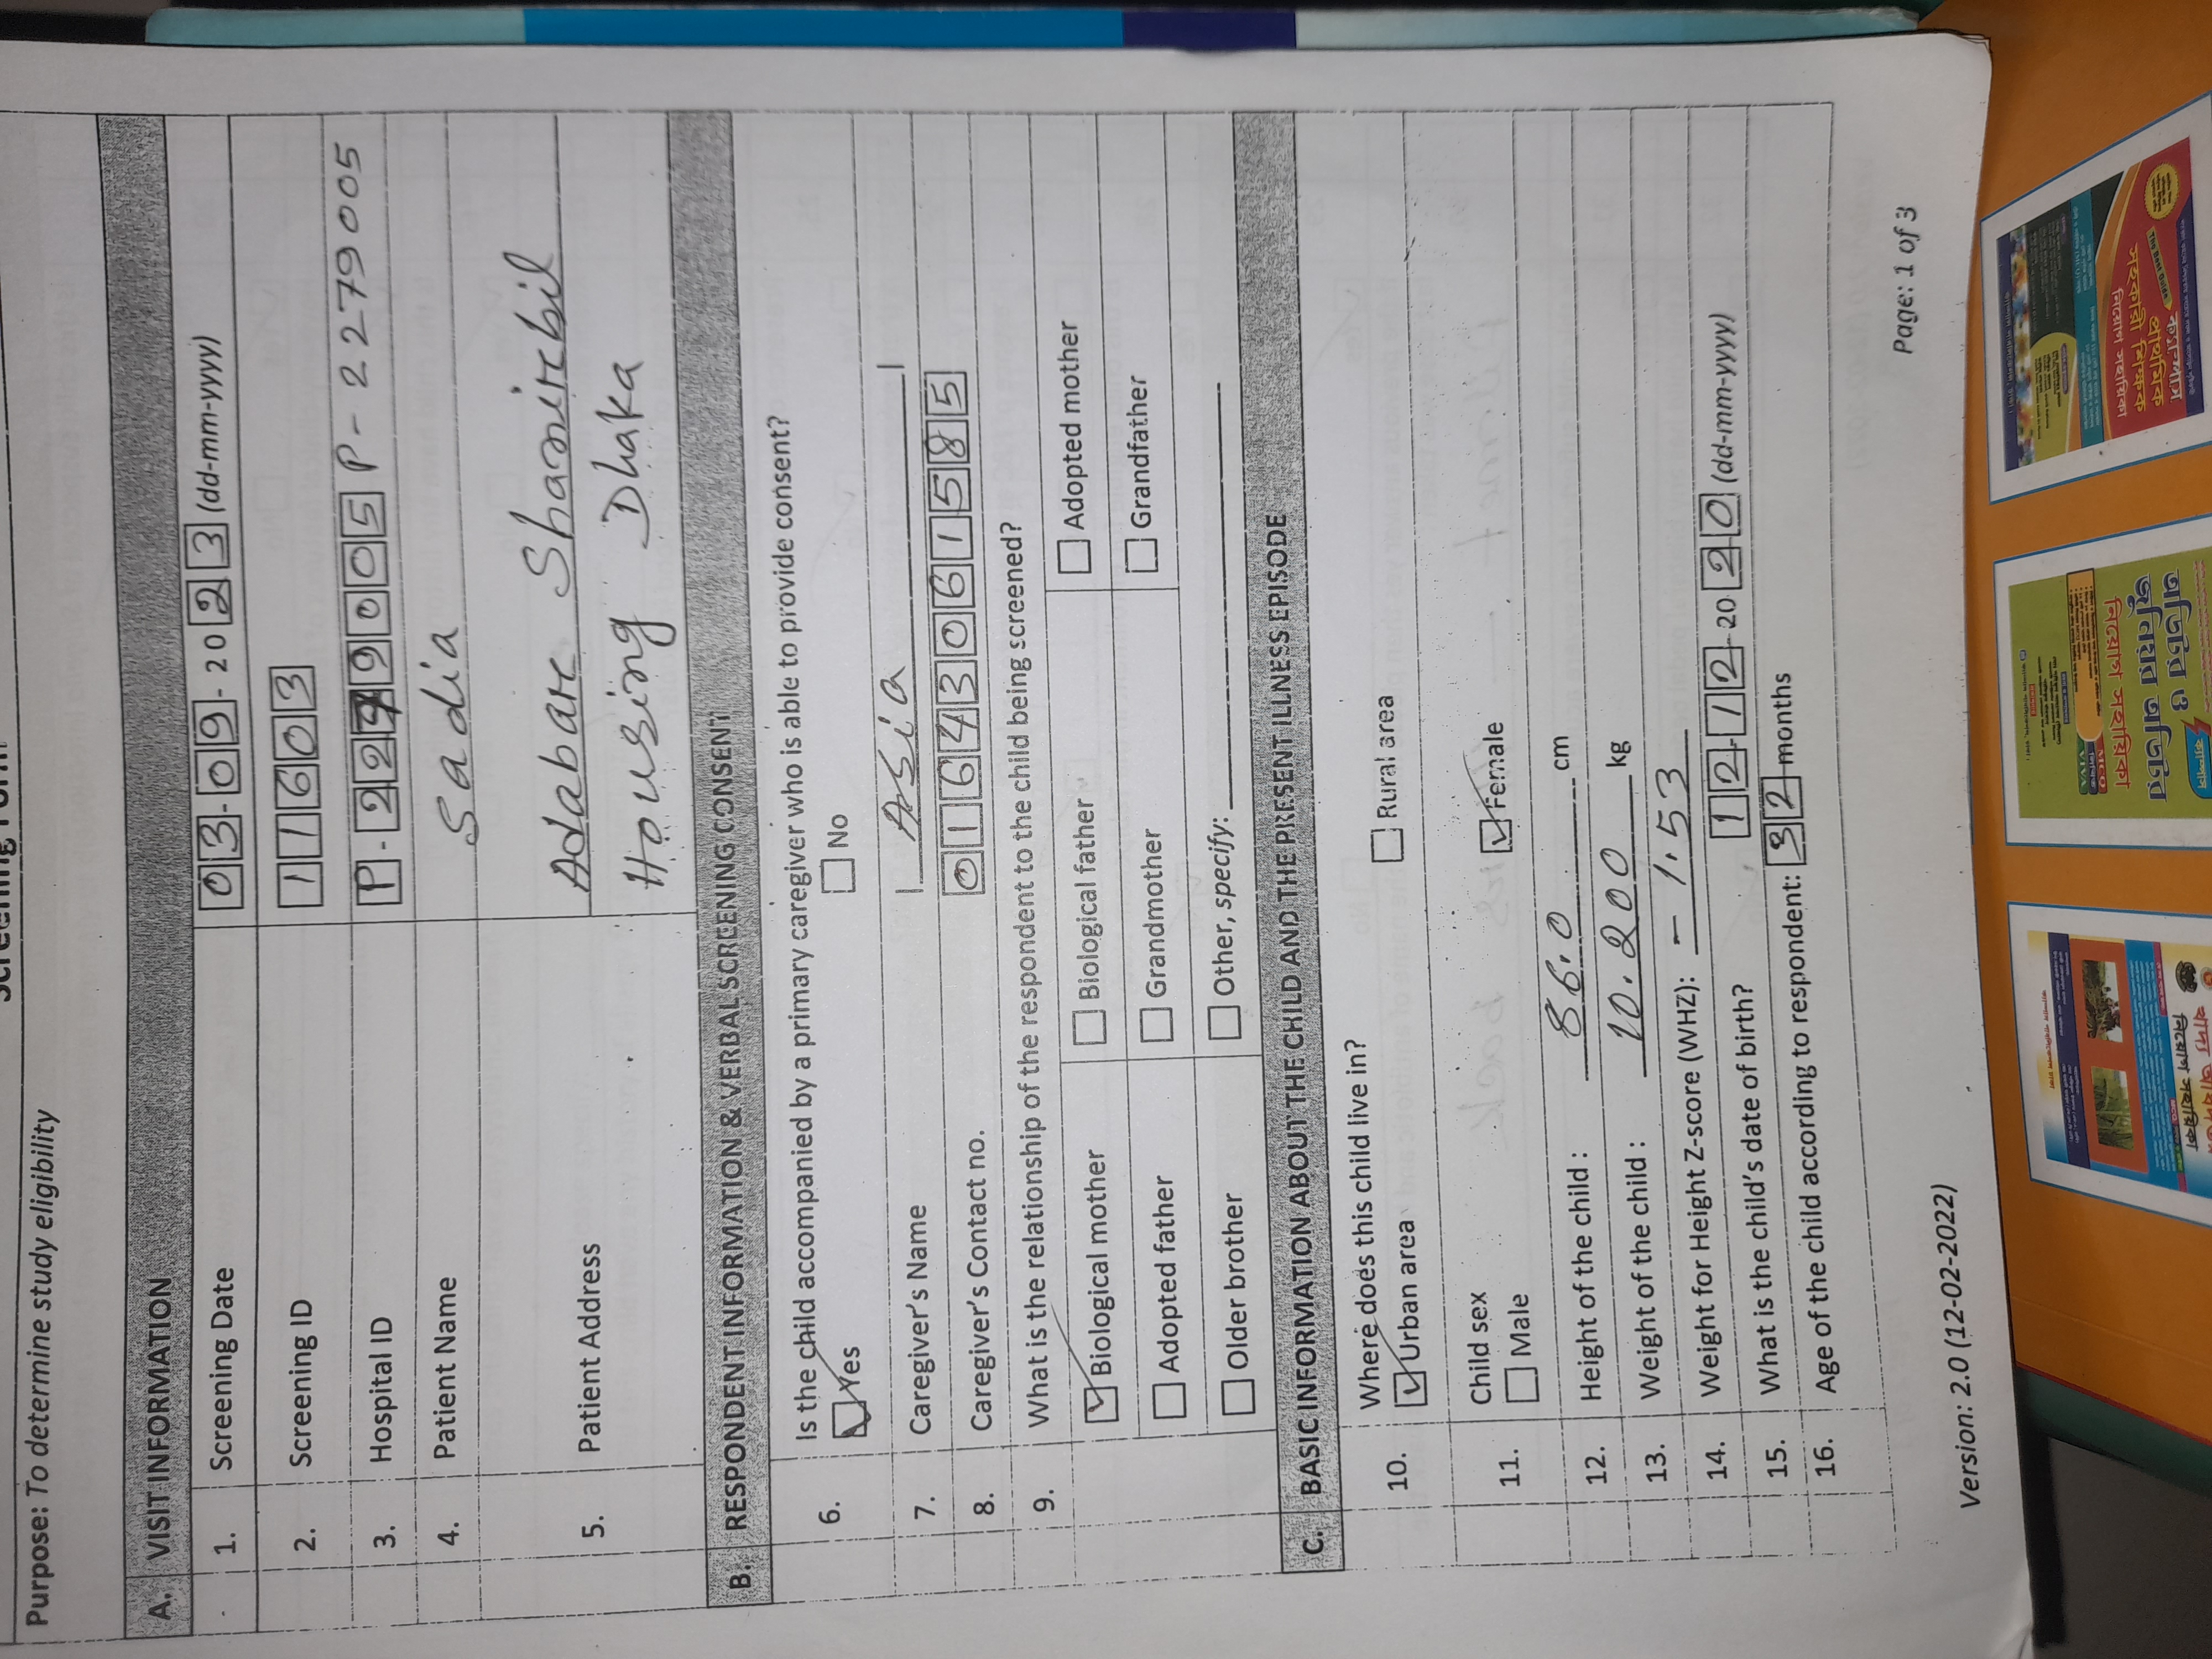 Screening Form
Purpose: To determine study eligibility
A. VISIT INFORMATION
1. Screening Date 03-09-2023 (dd-mm-yyyy)
2. Screening ID 11603
3. Hospital ID P-2279005 P-2279005
4. Patient Name Sadia
5. Patient Address Adabare Shamirebil
Housing Dhaka
B. RESPONDENT INFORMATION & VERBAL SCREENING CONSENT
6. Is the child accompanied by a primary caregiver who is able to provide consent?
Yes No
7. Caregiver's Name Asia
8. Caregiver's Contact no. 01643061585
9. What is the relationship of the respondent to the child being screened?
Biological mother Biological father Adopted mother
Adopted father Grandmother Grandfather
Older brother Other, specify:
C. BASIC INFORMATION ABOUT THE CHILD AND THE PRESENT ILLNESS EPISODE
10. Where does this child live in?
Urban area Rural area
11. Child sex
Male Female
12. Height of the child : 86.0 cm
13. Weight of the child : 10.200 kg
14. Weight for Height Z-score (WHZ): - 1.53
15. What is the child's date of birth? 12-12-2020 (dd-mm-yyyy)
16. Age of the child according to respondent: 32 months
Page: 1 of 3
Version: 2.0 (12-02-2022)